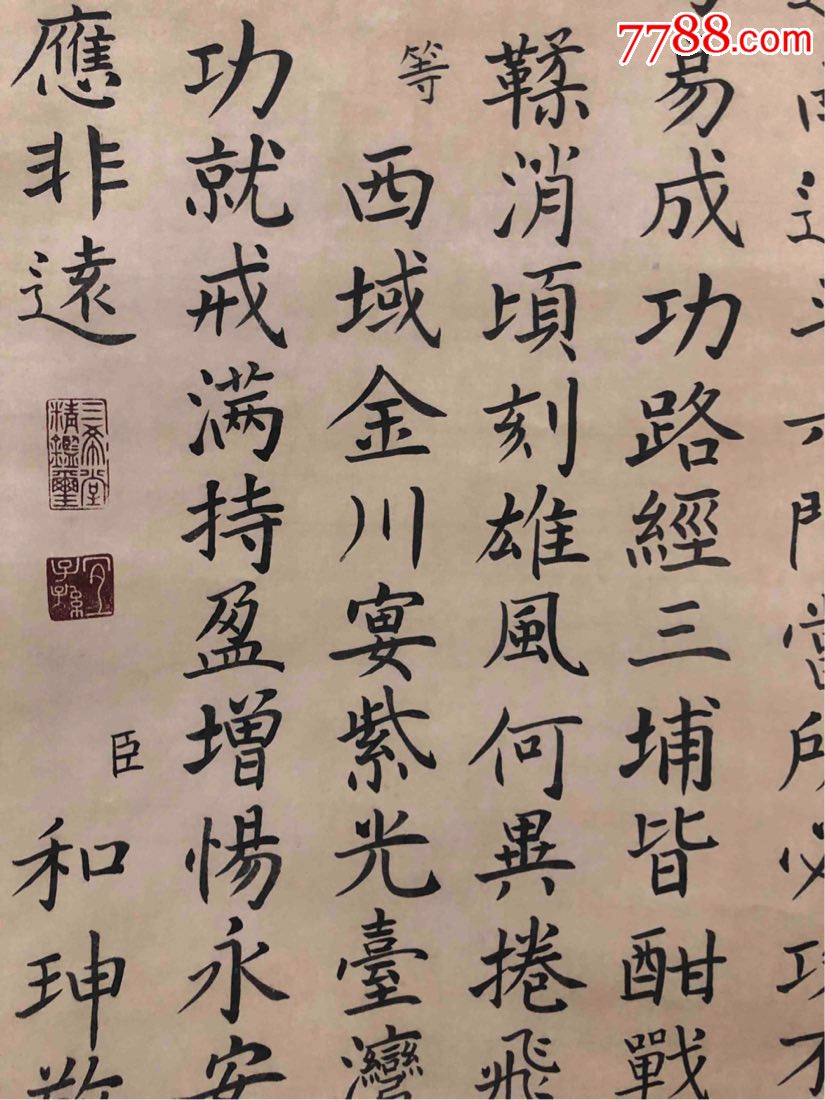 7788.com
門當所必
易成功路經三埔皆酣戰
鞣消頃刻雄風何異捲飛
等
西域金川宴紫光臺灣
功就戒满持盈增惕永安
應非遠
三希堂精鑑璽
宜子孫
臣
和珅敬